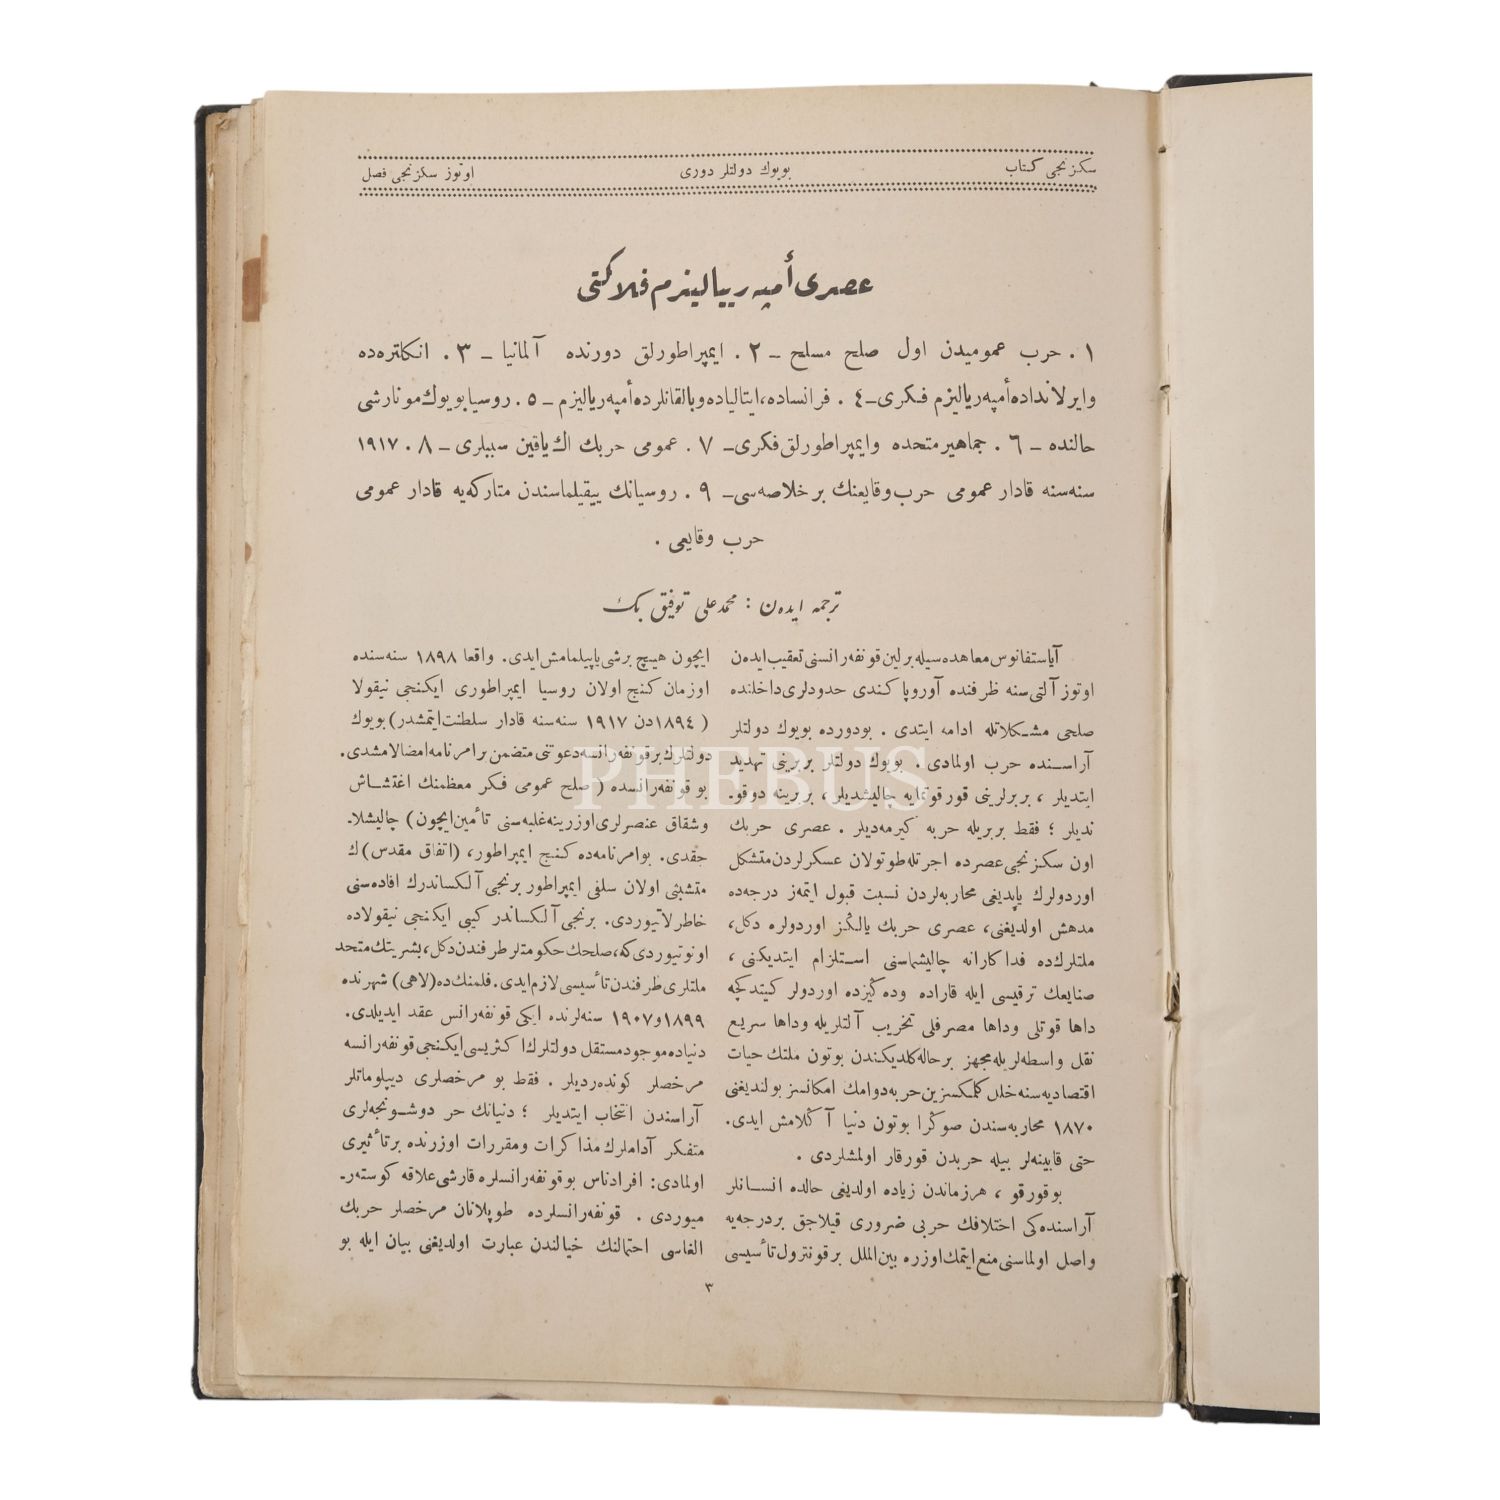 سكزنجی كتاب
بویوك دولتلر دوری
اوتوز سكزنجی فصل
عصری أمپه‌ریالیزم فلاكتی
۱ . حرب عمومیدن اول صلح مسلح ــ ۲ . ایمپراطورلق دورنده آلمانیا ــ ۳ . انكلتره‌ده
وایرلانداده أمپه‌ریالیزم فكری ــ ٤ . فرانساده، ایتالیاده وبالقانلرده أمپه‌ریالیزم ــ ٥ . روسیا بویوك مونارشی
حالنده ــ ٦ . جماهیر متحده وایمپراطورلق فكری ــ ٧ . عمومی حربك اك یاقین سببلری ــ ٨ . ١٩١٧
سنه‌سنه قادار عمومی حرب وقایعنك بر خلاصه‌سی ــ ٩ . روسیانك ییقیلماسندن متاركه‌یه قادار عمومی
حرب وقایعی .
ترجمه ایده‌ن : محمد علی توفیق بك
آیاستفانوس معاهده‌سیله برلین قونفه‌رانسنی تعقیب ایده‌ن
اوتوز آلتی سنه ظرفنده آوروپا كندی حدودلری داخلنده
صلحی مشكلاتله ادامه ایتدی . بودورده بویوك دولتلر
آراسنده حرب اولمادی . بویوك دولتلر بربرینی تهدید
ایتدیلر ، بربرلرینی قورقوتمایه چالیشدیلر ، بربرینه دوقو-
ندیلر ؛ فقط بربریله حربه كیرمه‌دیلر . عصری حربك
اون سكزنجی عصرده اجرتله طوتولان عسكرلردن متشكل
اوردولرك یاپدیغی محاربه‌لردن نسبت قبول ایتمز درجه‌ده
مدهش اولدیغنی، عصری حربك یالكز اوردولره دكل،
ملتلرك‌ده فداكارانه چالیشماسنی استلزام ایتدیكنی ،
صنایعك ترقیسی ایله قاراده وده‌ڭیزده اوردولر كیتدكجه
داها قوتلی وداها مصرفلی تخریب آلتلریله وداها سریع
نقل واسطه‌لریله مجهز برحاله كلدیكندن بوتون ملتك حیات
اقتصادیه‌سنه خلل كلمكسزین حربه دوامك امكانسز بولندیغنی
١٨٧٠ محاربه‌سندن صوڭرا بوتون دنیا آڭلامش ایدی.
حتی قابینه‌لر بیله حربدن قورقار اولمشلردی .
بوقورقو ، هرزماندن زیاده اولدیغی حالده انسانلر
آراسنده‌كی اختلافك حربی ضروری قیلاجق بردرجه‌یه
واصل اولماسنی منع ایتمك اوزره بین‌الملل برقونترول تأسیسی
ایچون هیچ برشی یاپیلمامش ایدی. واقعا ١٨٩٨ سنه‌سنده
اوزمان كنج اولان روسیا ایمپراطوری ایكنجی نیقولا
(١٨٩٤دن ١٩١٧ سنه‌سنه قادار سلطنت ایتمشدر) بویوك
دولتلرك برقونفه‌رانسه دعوتنی متضمن برامرنامه امضالامشدی.
بو قونفه‌رانسده (صلح عمومی فكر معظمنك اغتشاش
وشقاق عنصرلری اوزرینه غلبه‌سنی تأمین ایچون) چالیشلا-
جقدی. بوامرنامه‌ده كنج ایمپراطور، (اتفاق مقدس)ك
متشبثی اولان سلفی ایمپراطور برنجی آلكساندرك افاده‌سنی
خاطرلاتیوردی. برنجی آلكساندر كیبی ایكنجی نیقولاده
اونوتیوردی كه، صلحك حكومتلر طرفندن دكل، بشریتك متحد
ملتلری طرفندن تأسیسی لازم ایدی. فلمنك‌ده (لاهی) شهرنده
١٨٩٩ و ١٩٠٧ سنه‌لرنده ایكی قونفه‌رانس عقد ایدیلدی.
دنیاده موجود مستقل دولتلرك اكثریسی ایكنجی قونفه‌رانسه
مرخصلر كونده‌ردیلر . فقط بو مرخصلری دیپلوماتلر
آراسندن انتخاب ایتدیلر ؛ دنیانك حر دوشونجه‌لری
متفكر آداملرك مذاكرات ومقررات اوزرنده برتأثیری
اولمادی: افراد ناس بوقونفه‌رانسلره قارشی علاقه كوسته‌ر-
میوردی . قونفه‌رانسلرده طوپلانان مرخصلر حربك
الغاسی احتمالنك خیالندن عبارت اولدیغنی بیان ایله بو
٣
PHEBUS